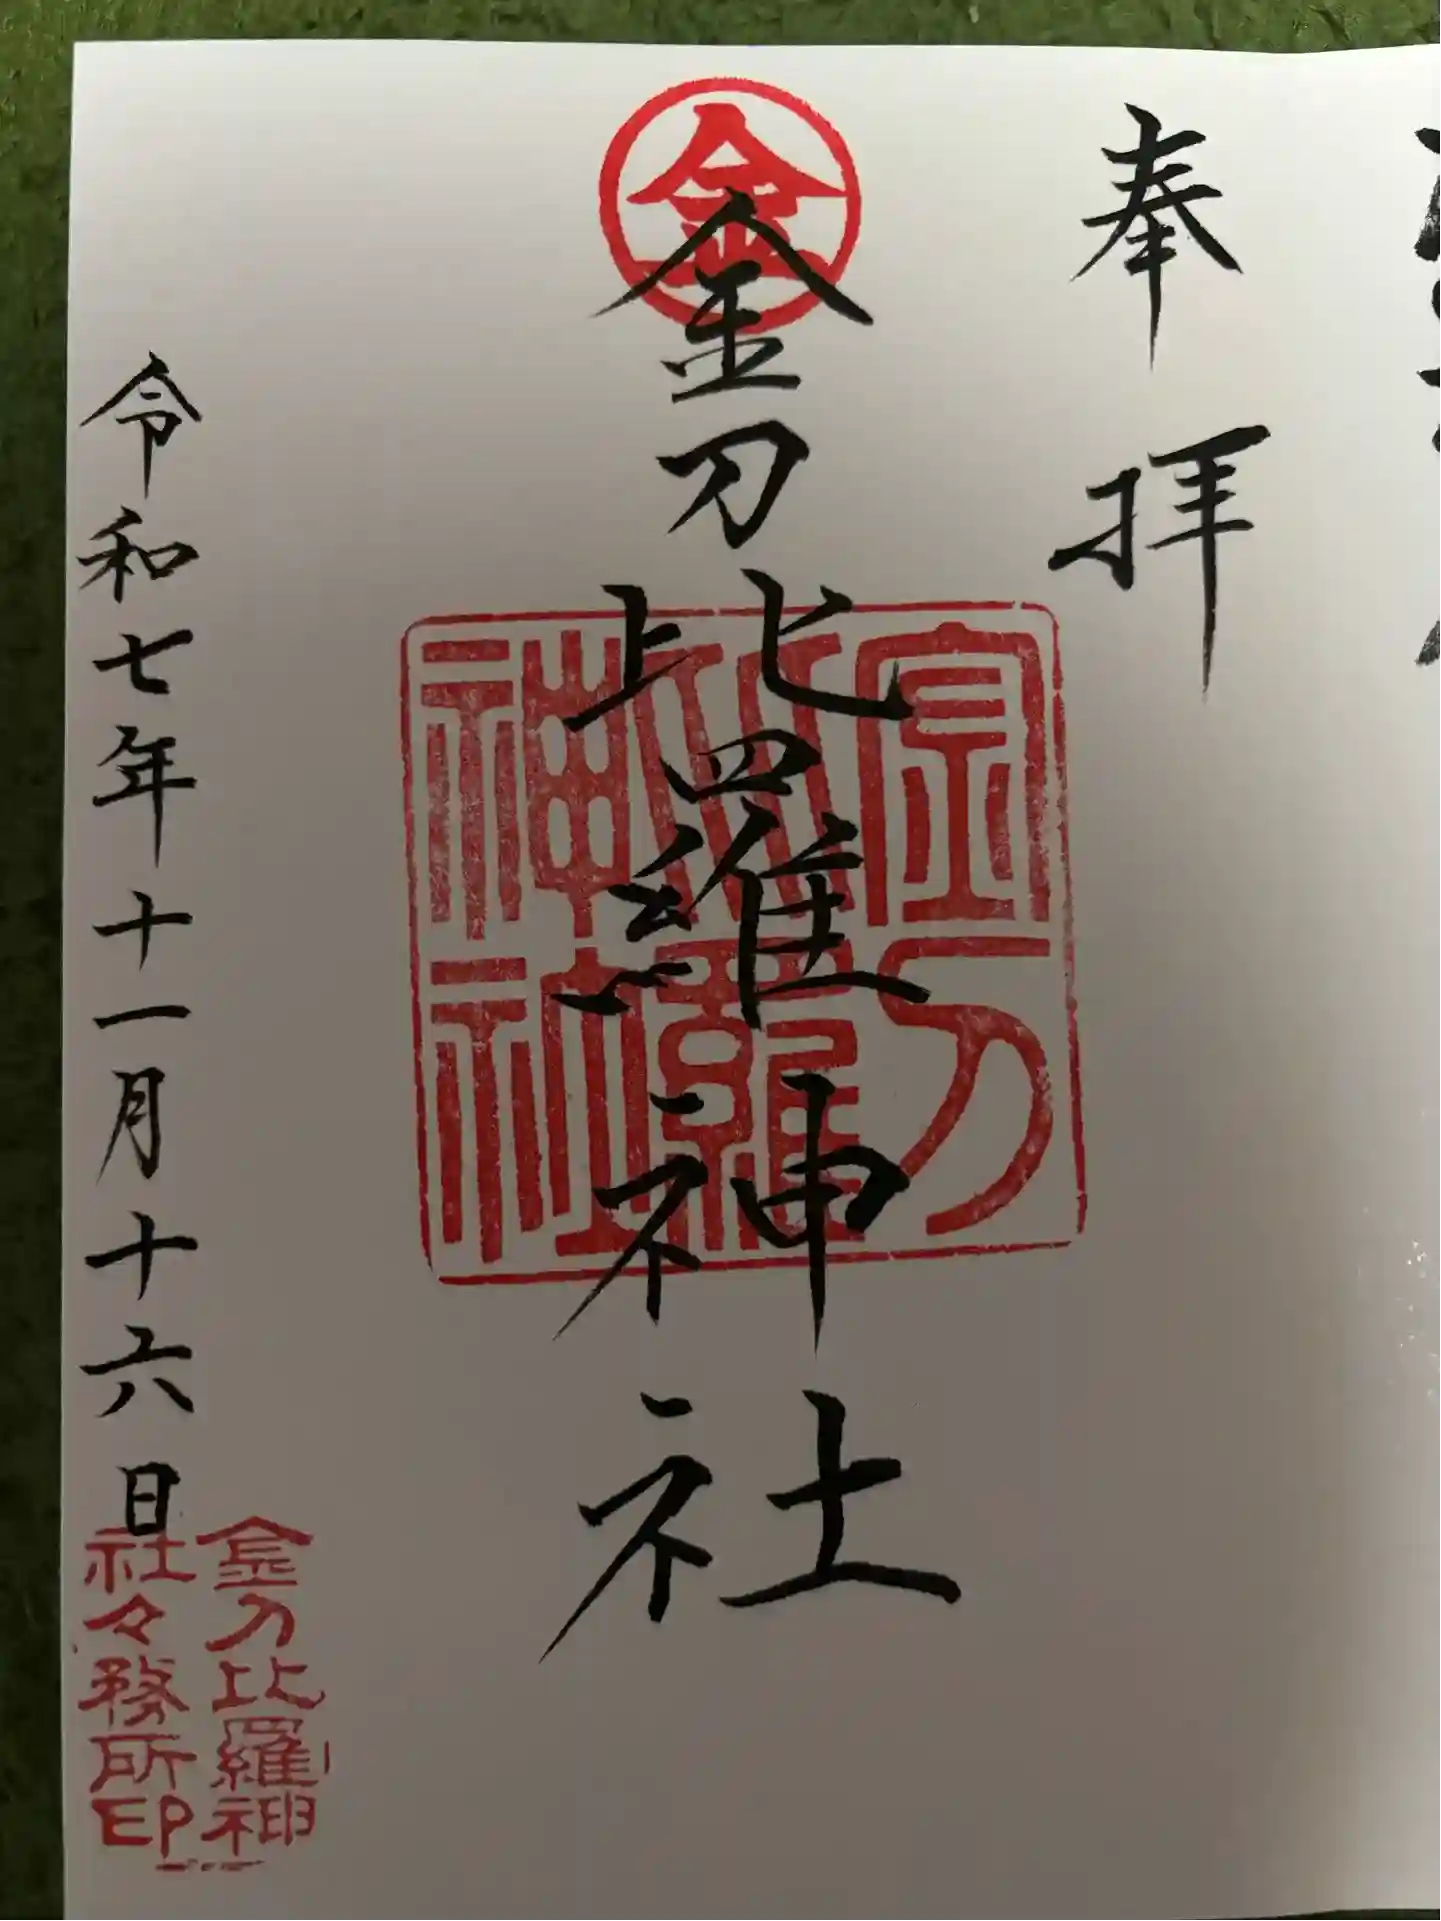 奉拝
金
金刀比羅神社
金刀比羅神社
令和七年十一月十六日
金刀比羅神
社々務所印